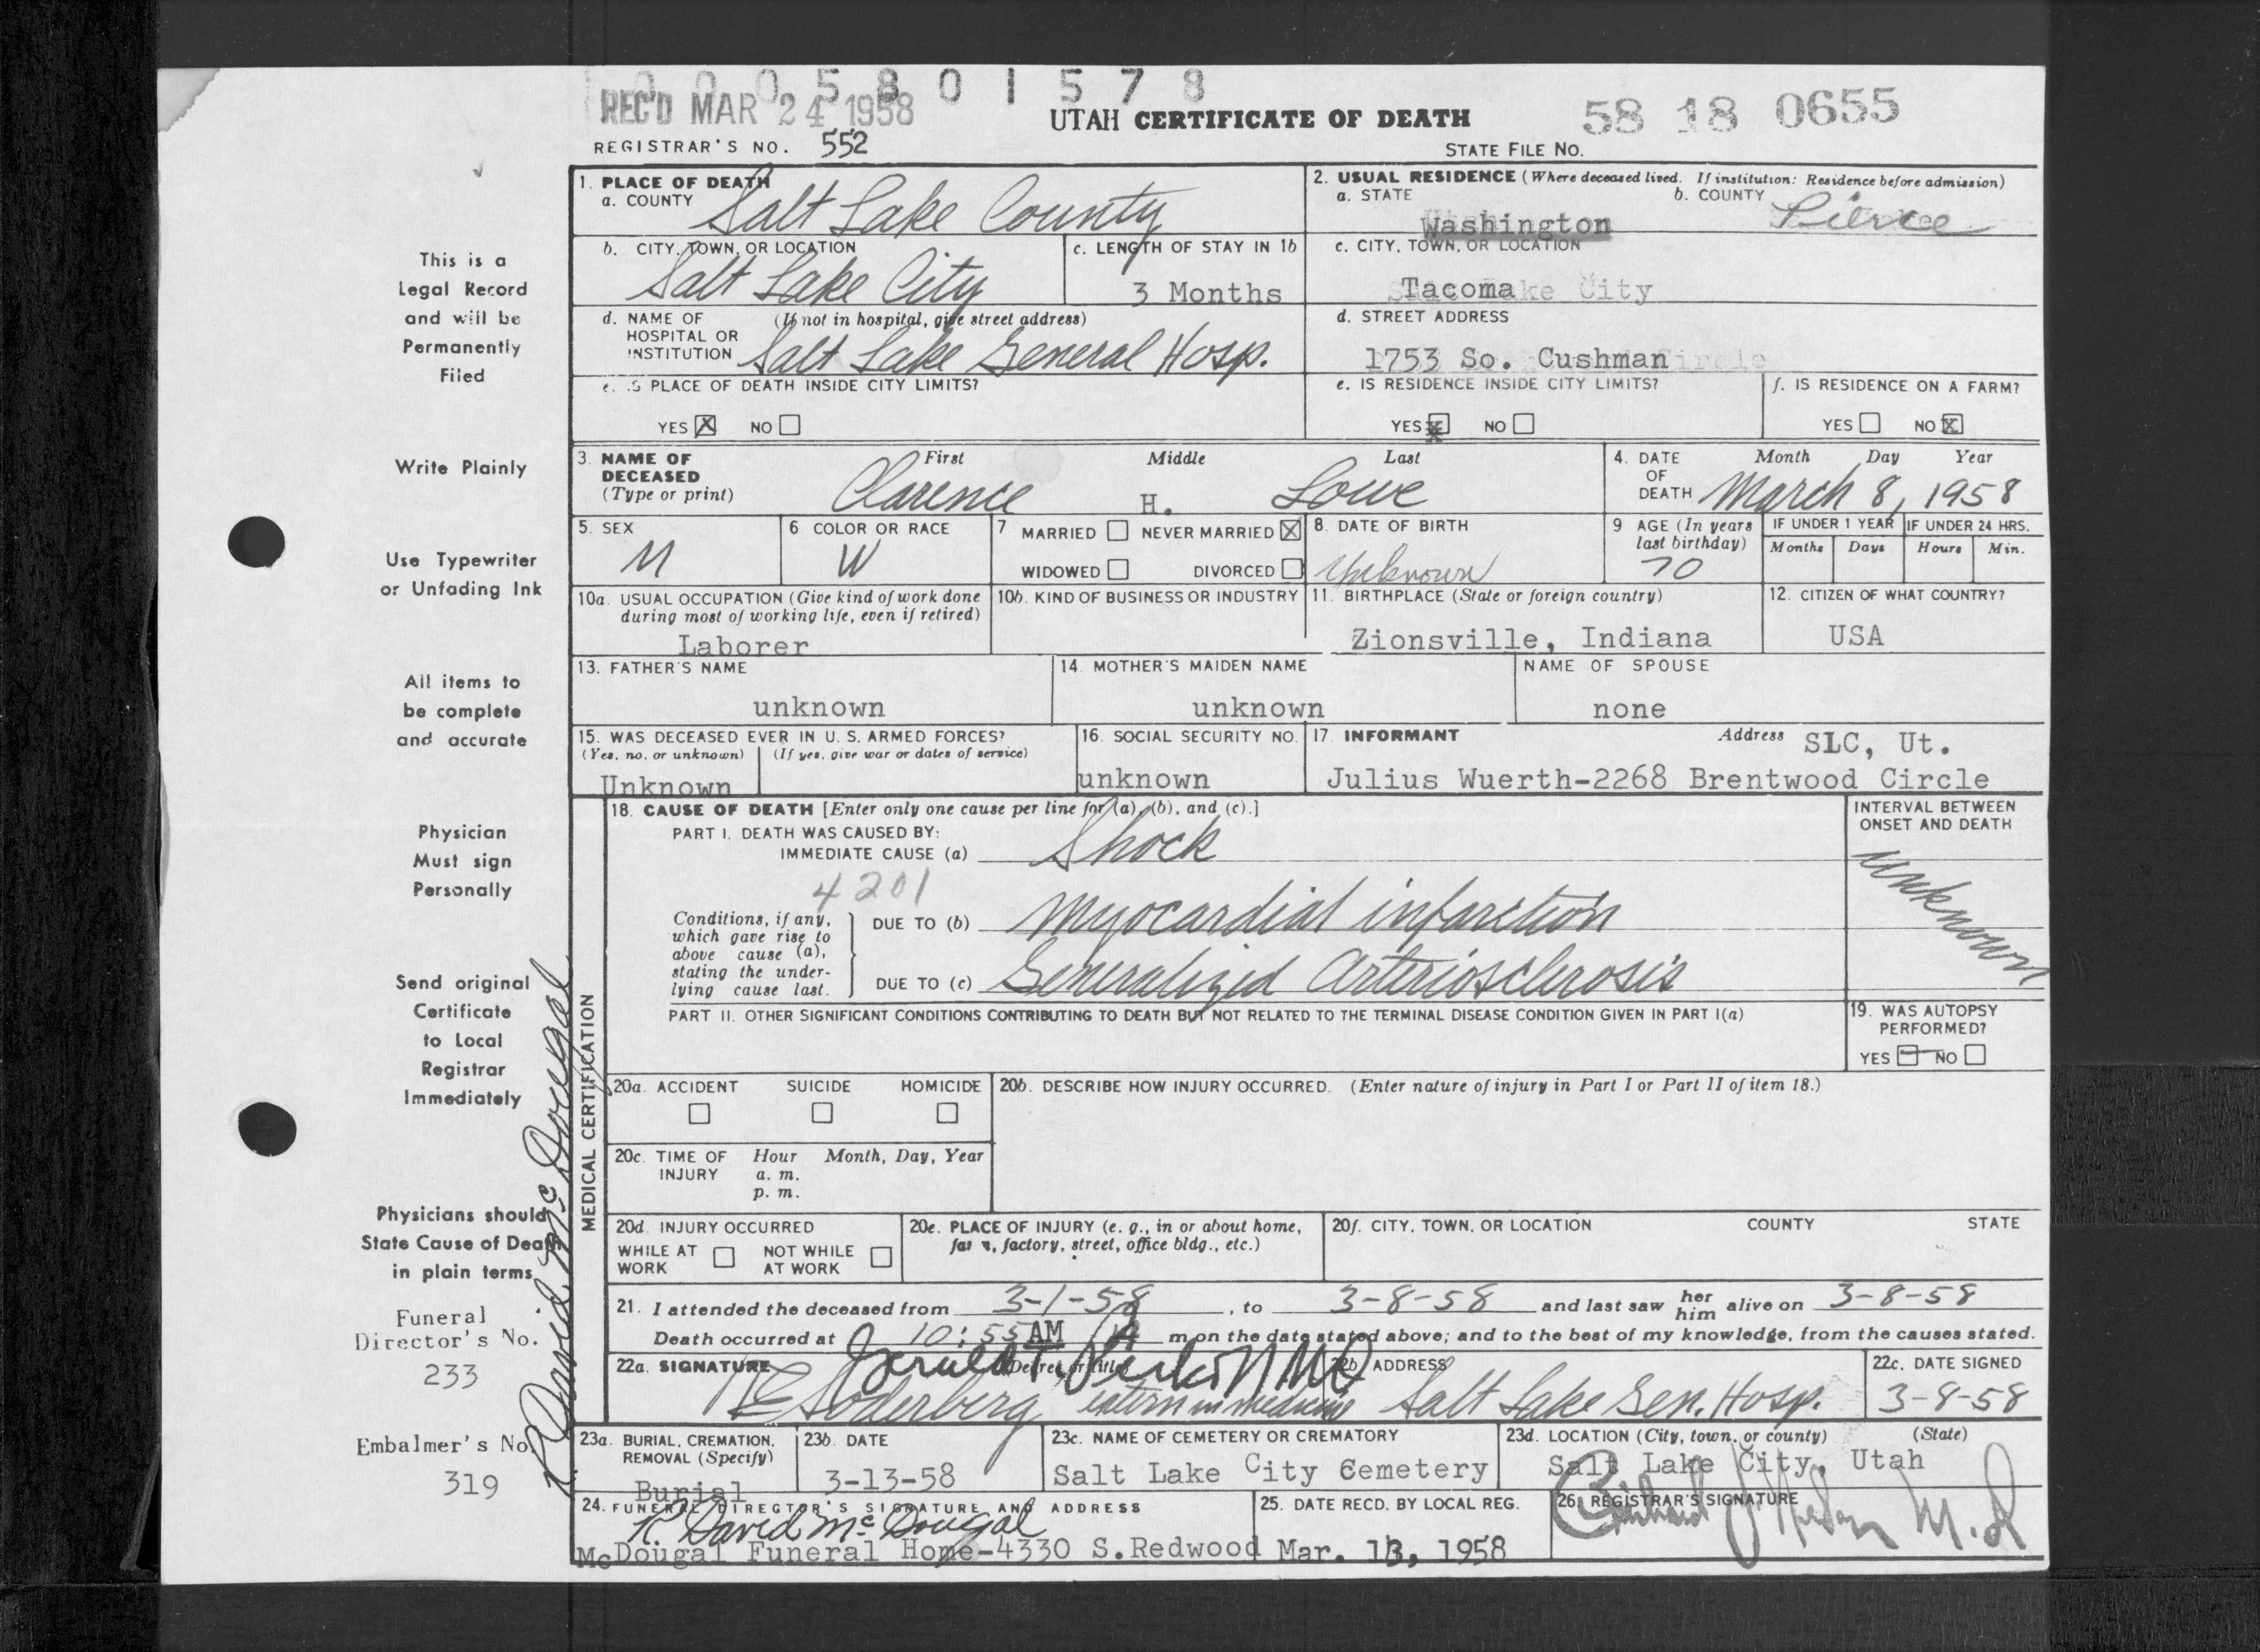 0 0 0 5 8 0 1 5 7 8
REC'D MAR 24 1958
UTAH CERTIFICATE OF DEATH
58 18 0655
REGISTRAR'S NO. 552
STATE FILE NO.
1. PLACE OF DEATH
a. COUNTY Salt Lake County
2. USUAL RESIDENCE (Where deceased lived. If institution: Residence before admission)
a. STATE Washington
b. COUNTY Pierce
b. CITY, TOWN, OR LOCATION Salt Lake City
c. LENGTH OF STAY IN 1b 3 Months
c. CITY, TOWN, OR LOCATION
Tacoma
d. NAME OF HOSPITAL OR INSTITUTION (If not in hospital, give street address)
Salt Lake General Hosp.
d. STREET ADDRESS
1753 So. Cushman
e. IS PLACE OF DEATH INSIDE CITY LIMITS?
YES X NO
e. IS RESIDENCE INSIDE CITY LIMITS?
YES X NO
f. IS RESIDENCE ON A FARM?
YES NO X
3. NAME OF DECEASED (Type or print)
First Middle Last
Clarence H. Lowe
4. DATE OF DEATH
Month Day Year
March 8, 1958
5. SEX
M
6 COLOR OR RACE
W
7 MARRIED NEVER MARRIED X
WIDOWED DIVORCED
8. DATE OF BIRTH
Unknown
9 AGE (In years last birthday)
70
IF UNDER 1 YEAR
Months Days
IF UNDER 24 HRS.
Hours Min.
10a. USUAL OCCUPATION (Give kind of work done during most of working life, even if retired)
Laborer
10b. KIND OF BUSINESS OR INDUSTRY
11. BIRTHPLACE (State or foreign country)
Zionsville, Indiana
12. CITIZEN OF WHAT COUNTRY?
USA
13. FATHER'S NAME
unknown
14. MOTHER'S MAIDEN NAME
unknown
NAME OF SPOUSE
none
15. WAS DECEASED EVER IN U. S. ARMED FORCES?
(Yes, no, or unknown) (If yes, give war or dates of service)
Unknown
16. SOCIAL SECURITY NO.
unknown
17. INFORMANT Address SLC, Ut.
Julius Wuerth-2268 Brentwood Circle
MEDICAL CERTIFICATION
18. CAUSE OF DEATH [Enter only one cause per line for (a), (b), and (c).]
PART I. DEATH WAS CAUSED BY:
IMMEDIATE CAUSE (a) Shock
4201
Conditions, if any, which gave rise to above cause (a), stating the underlying cause last.
DUE TO (b) Myocardial infarction
DUE TO (c) Generalized Arteriosclerosis
INTERVAL BETWEEN ONSET AND DEATH
unknown
PART II. OTHER SIGNIFICANT CONDITIONS CONTRIBUTING TO DEATH BUT NOT RELATED TO THE TERMINAL DISEASE CONDITION GIVEN IN PART I(a)
19. WAS AUTOPSY PERFORMED?
YES NO
20a. ACCIDENT SUICIDE HOMICIDE
20b. DESCRIBE HOW INJURY OCCURRED. (Enter nature of injury in Part I or Part II of item 18.)
20c. TIME OF INJURY
Hour Month, Day, Year
a. m.
p. m.
20d. INJURY OCCURRED
WHILE AT WORK NOT WHILE AT WORK
20e. PLACE OF INJURY (e. g., in or about home, farm, factory, street, office bldg., etc.)
20f. CITY, TOWN, OR LOCATION COUNTY STATE
21. I attended the deceased from 3-1-58, to 3-8-58 and last saw her him alive on 3-8-58
Death occurred at 10:55 AM m on the date stated above; and to the best of my knowledge, from the causes stated.
22a. SIGNATURE (Degree or title)
Soderberg intern in medicine
22b. ADDRESS
Salt Lake Gen. Hosp.
22c. DATE SIGNED
3-8-58
23a. BURIAL, CREMATION, REMOVAL (Specify)
Burial
23b. DATE
3-13-58
23c. NAME OF CEMETERY OR CREMATORY
Salt Lake City Cemetery
23d. LOCATION (City, town, or county) (State)
Salt Lake City, Utah
24. FUNERAL DIRECTOR'S SIGNATURE AND ADDRESS
R David McDougal
McDougal Funeral Home-4330 S.Redwood
25. DATE RECD. BY LOCAL REG.
Mar. 13, 1958
26. REGISTRAR'S SIGNATURE
M.D
This is a
Legal Record
and will be
Permanently
Filed
Write Plainly
Use Typewriter
or Unfading Ink
All items to
be complete
and accurate
Physician
Must sign
Personally
Send original
Certificate
to Local
Registrar
Immediately
Physicians should
State Cause of Death
in plain terms
Funeral
Director's No.
233
Embalmer's No.
319
R David McDougal